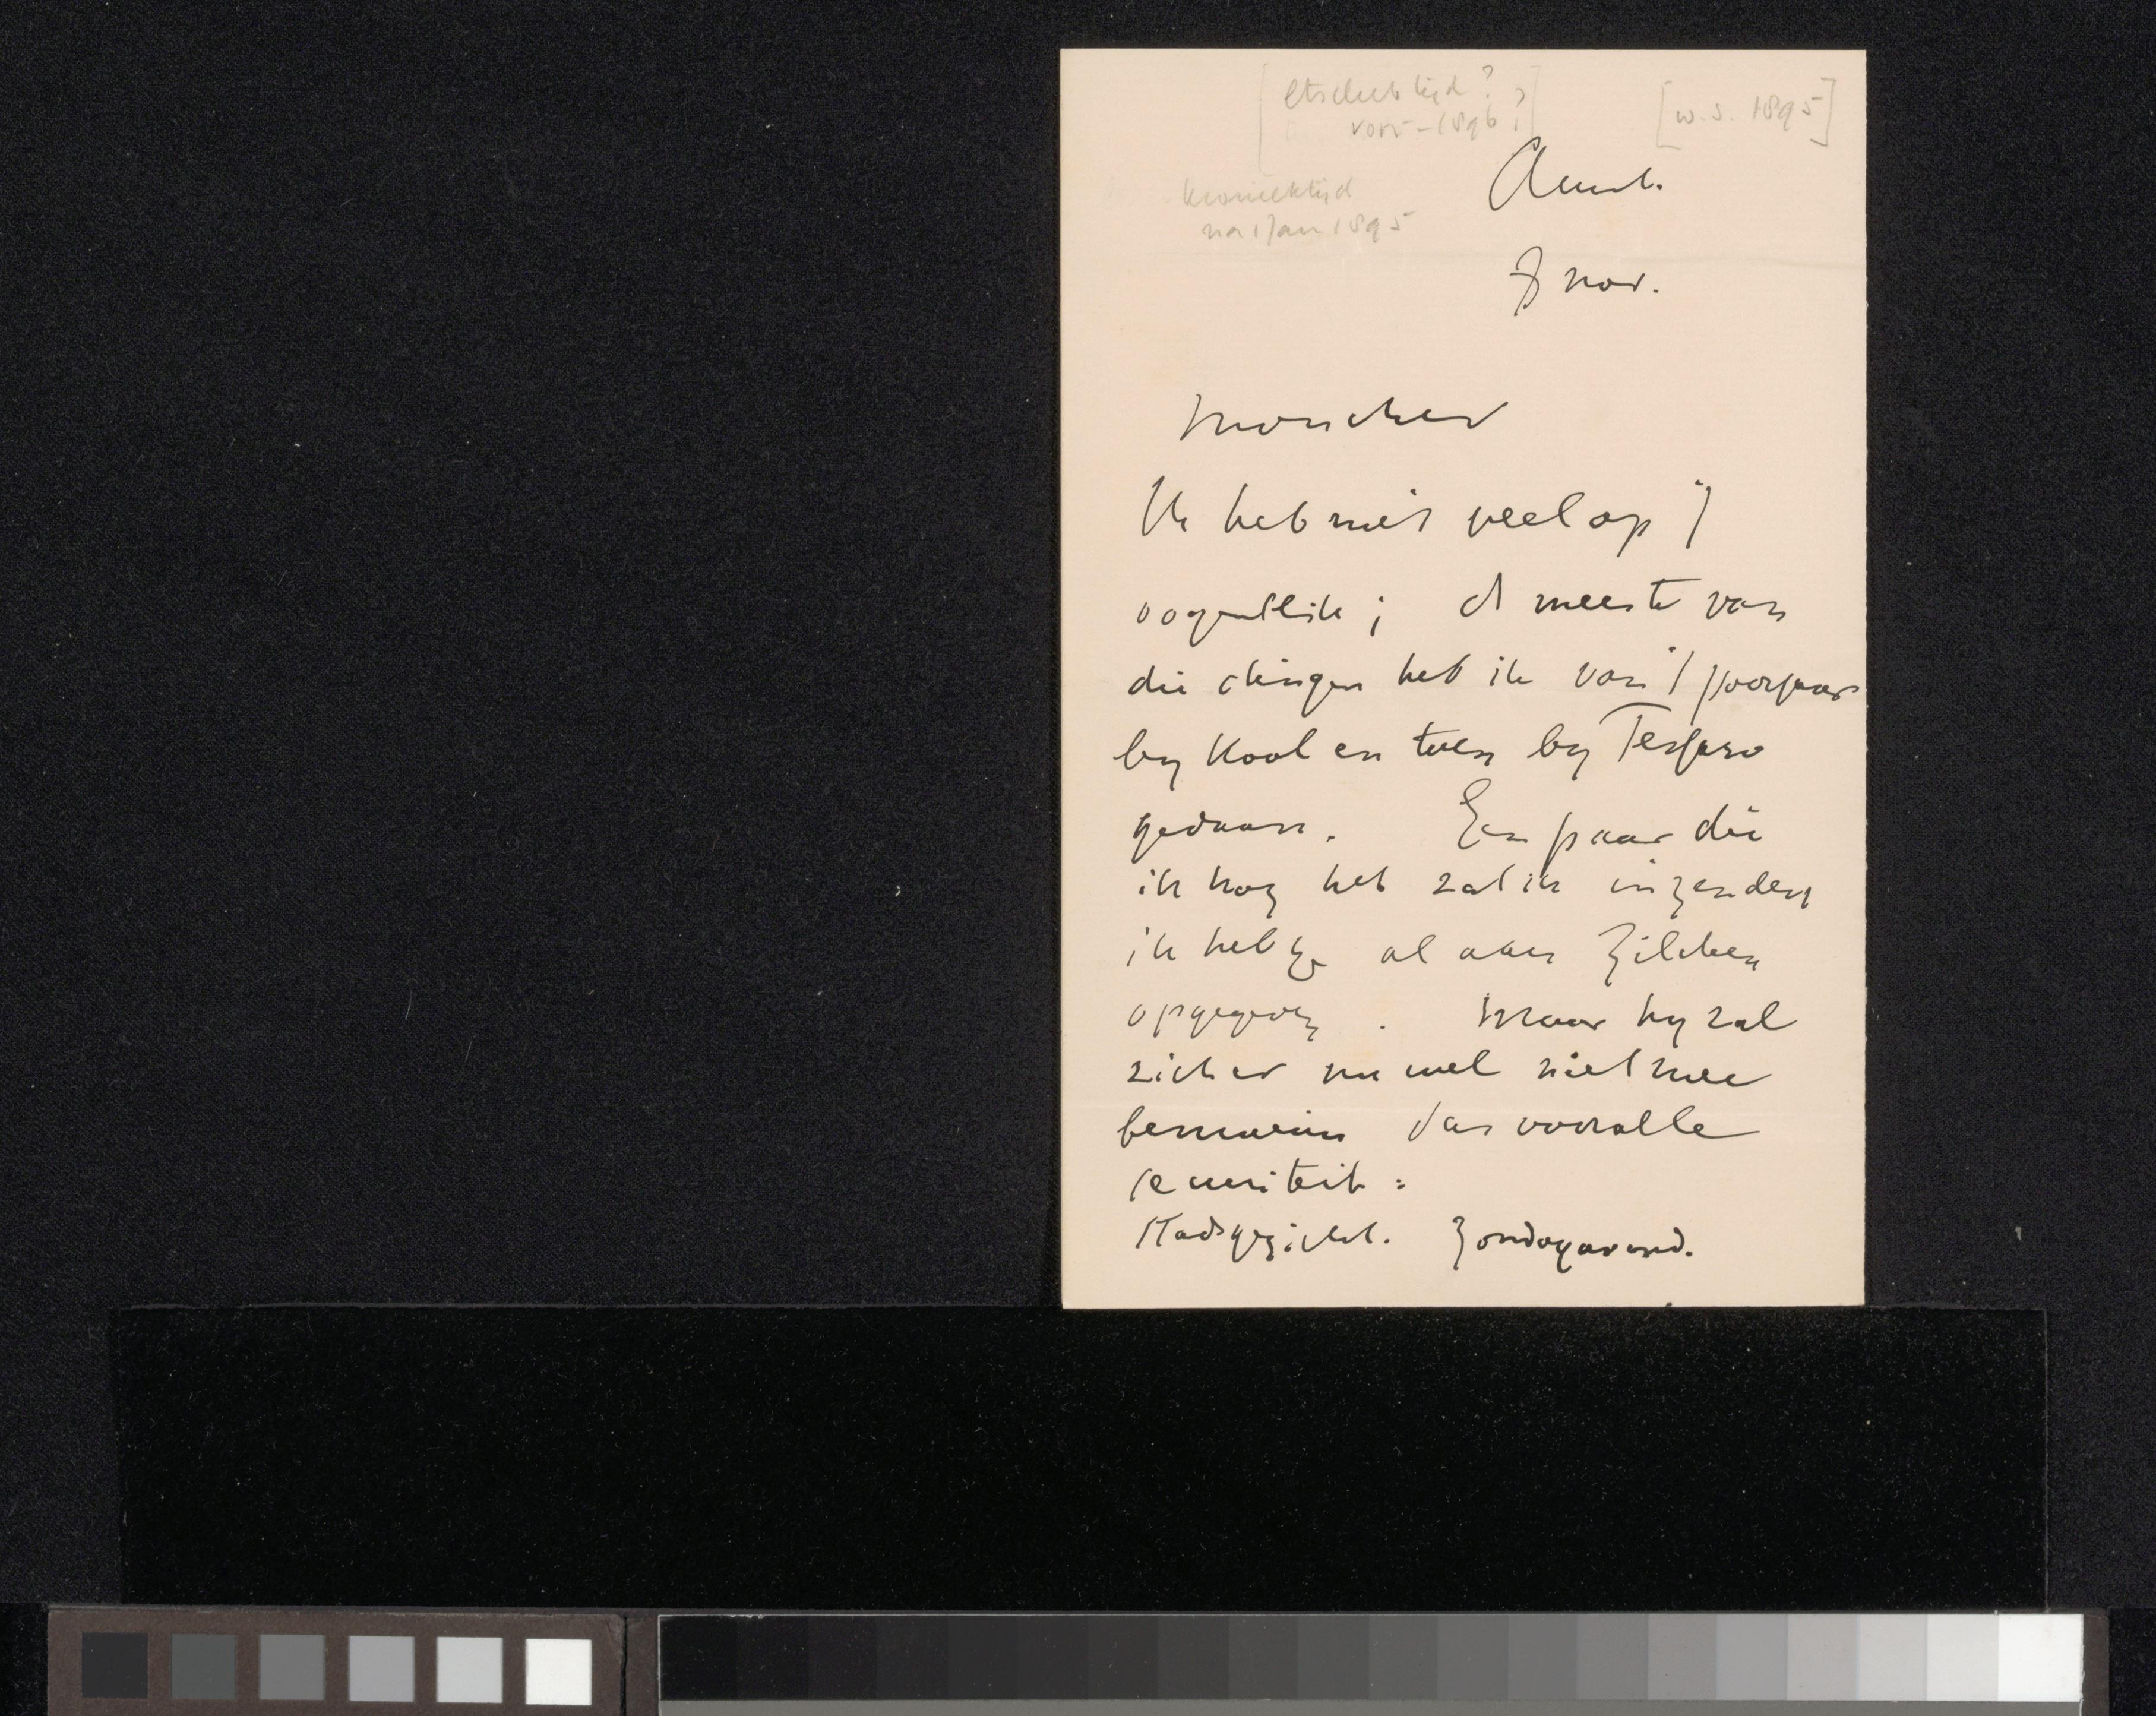 [etsclub tijd?
voor - 1896?]
[w.s. 1895]
Kroniektijd
na 1 Jan 1895
Amst.
7 nov.
Moncher
Ik heb niet veel op 't
oogenblik; de meeste van
die dingen heb ik van 't voorjaar
by Kool en toen by Tersteeg
gedaan. Een paar die
ik nog heb zal ik inzenden
ik heb ze al aan Zilcken
opgegeven. Maar hy zal
zich er nu wel niet mee
bemoeien dus voor alle
securiteit:
Stadsgezicht. Zondagavond.